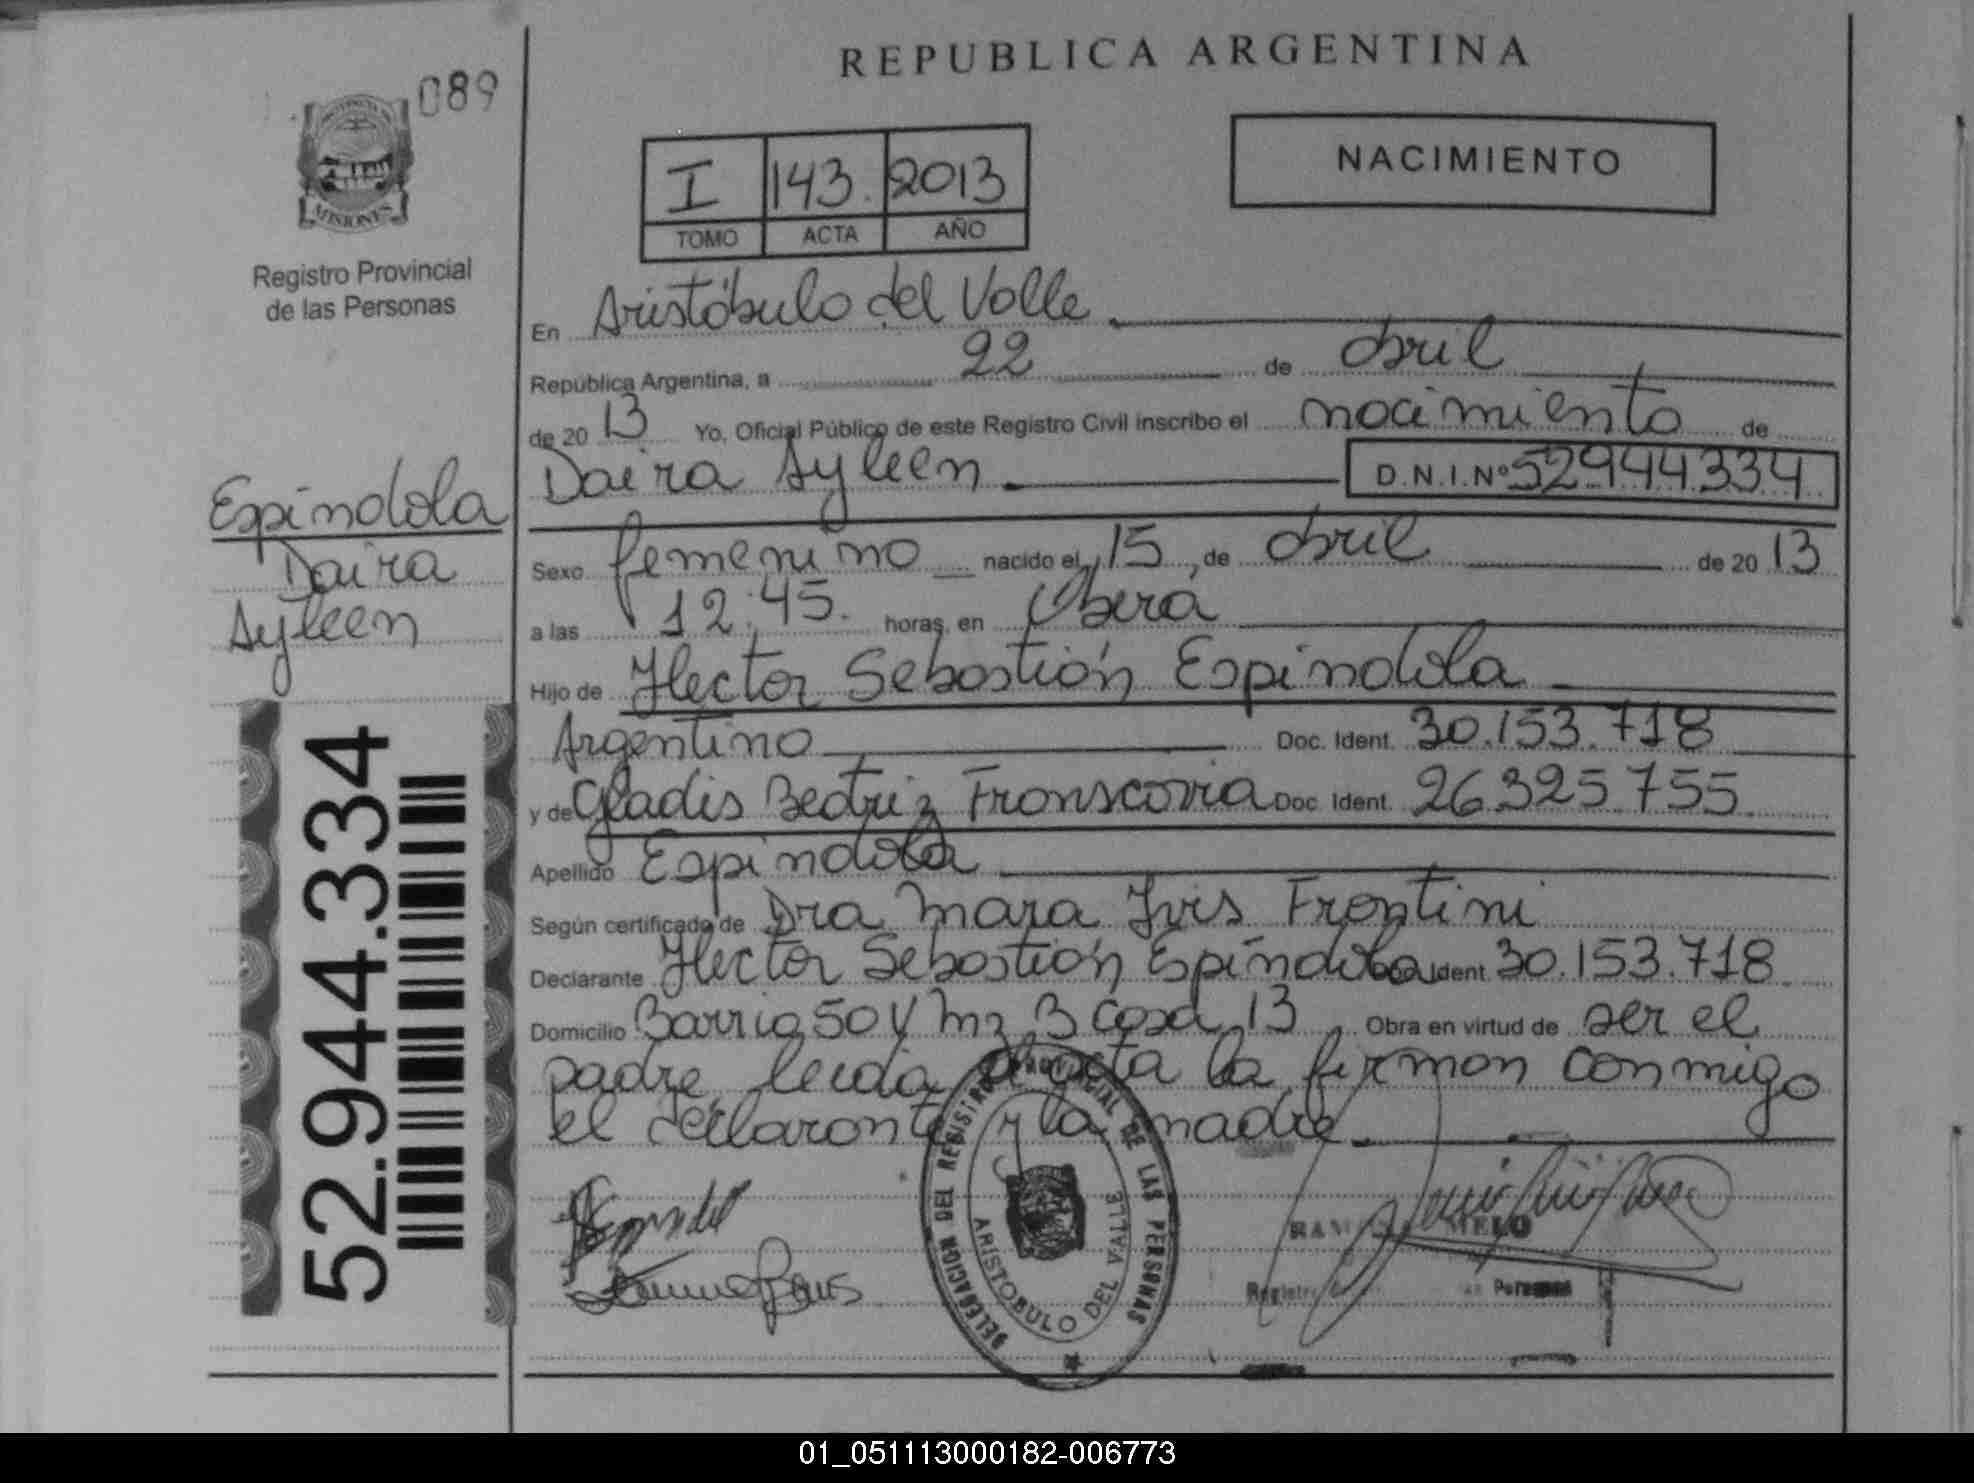 REPUBLICA ARGENTINA
089
PROVINCIA DE
MISIONES
Registro Provincial
de las Personas
I 143. 2013
TOMO ACTA AÑO
NACIMIENTO
En Aristóbulo del Valle
República Argentina, a 22 de abril
de 20 13 Yo, Oficial Público de este Registro Civil inscribo el nacimiento de
Daira Ayleen D.N.I.Nº 52944334
Espíndola
Daira
Ayleen
Sexo femenino nacido el 15 de abril de 20 13
a las 12:45. horas, en Oberá
Hijo de Hector Sebastián Espíndola
Argentino Doc. Ident. 30.153.718
y de Gladis Beatriz Franscovia Doc. Ident. 26325755
Apellido Espíndola
Según certificado de Dra Mara Ivis Frontini
Declarante Hector Sebastián Espíndola Doc. Ident. 30.153.718
Domicilio Barrio 50 V Mz B casa 13 Obra en virtud de ser el
padre, leida el acta la firman conmigo
el declarante y la madre.
52.944.334
DELEGACION DEL REGISTRO PROVINCIAL DE LAS PERSONAS
ARISTOBULO DEL VALLE
MELO
Registro Personas
01_051113000182-006773